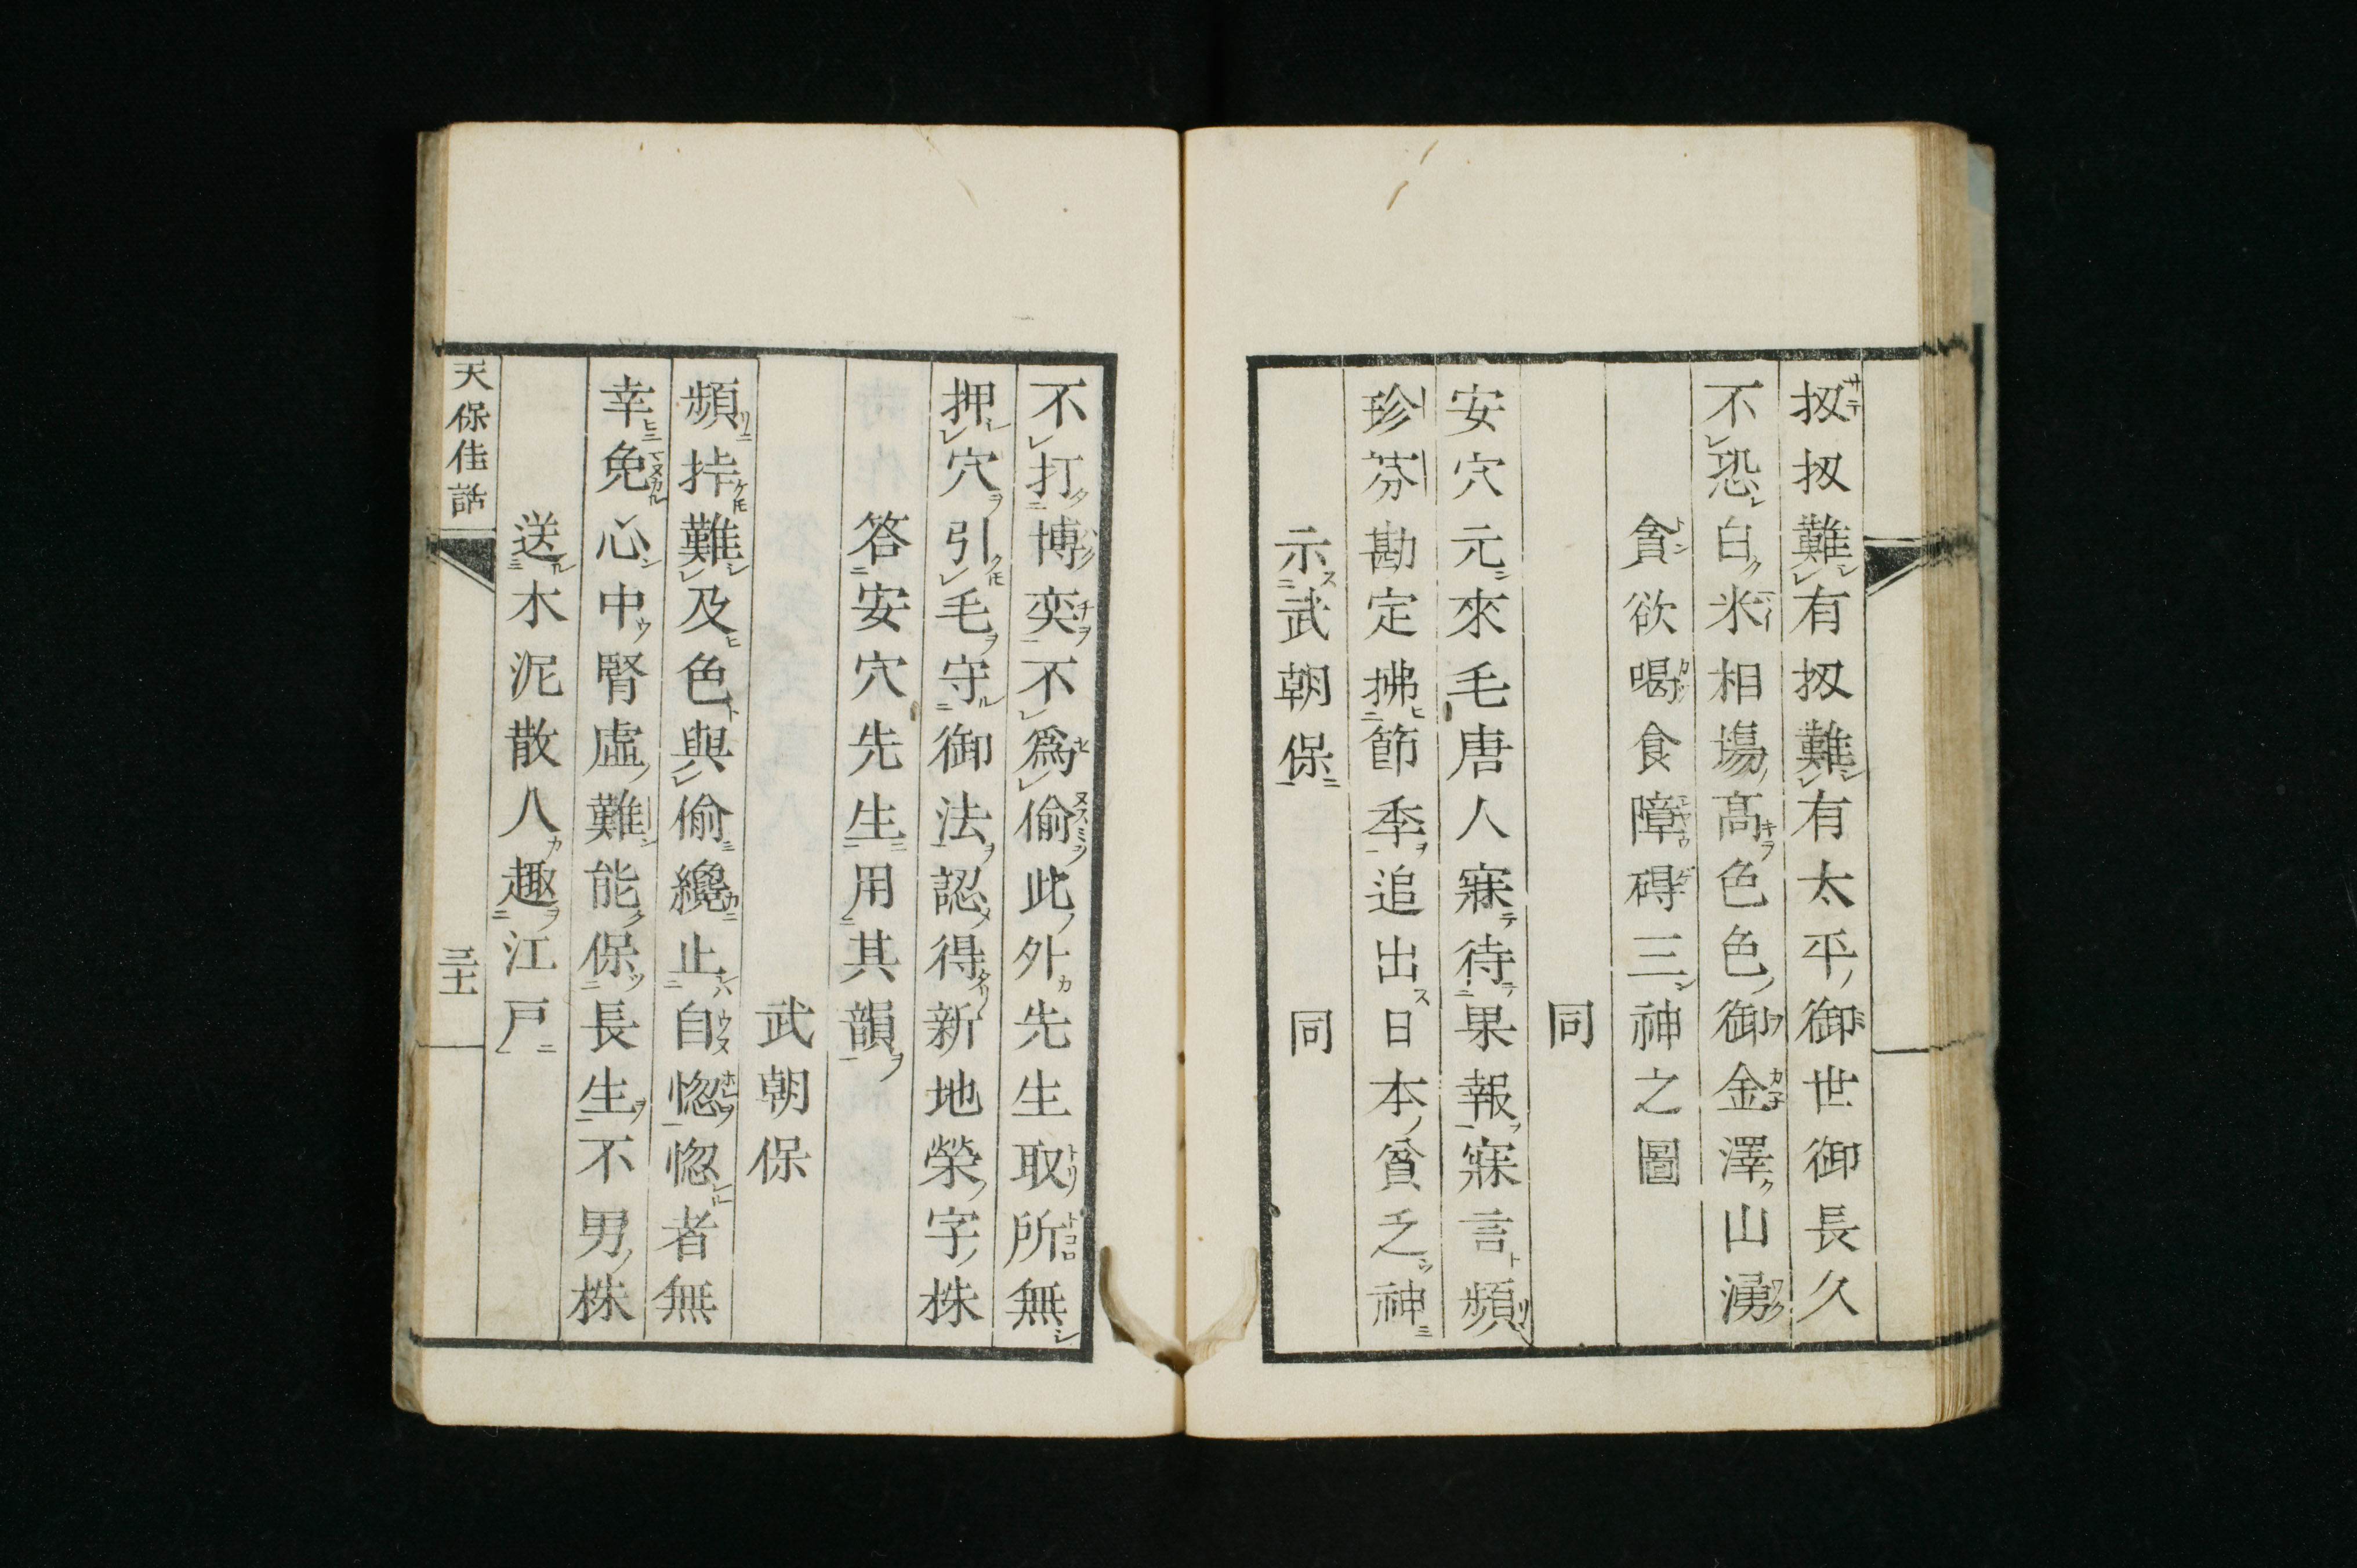 扨扨難有扨難有太平御世御長久
不恐白米相場高色色御金澤山湧
貪欲喝食障碍三神之圖
同
安穴元來毛唐人寐待果報寐言頻
珍芬勘定拂節季追出日本貧乏神
示武朝保 同
不打博奕不爲偷此外先生取所無
押穴引毛守御法認得新地榮字株
答安穴先生用其韻
武朝保
頻挊難及色與偷纔止自惚惚者無
幸免心中腎虛難能保長生不男株
送木泥散人趣江戸
天保佳話 三十二